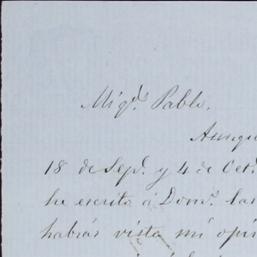 Mi q.do Pablo.
Aunqu
18 de Sep.e y 4 de Oct.
he escrito á Dom.o las
habrás visto mi opin